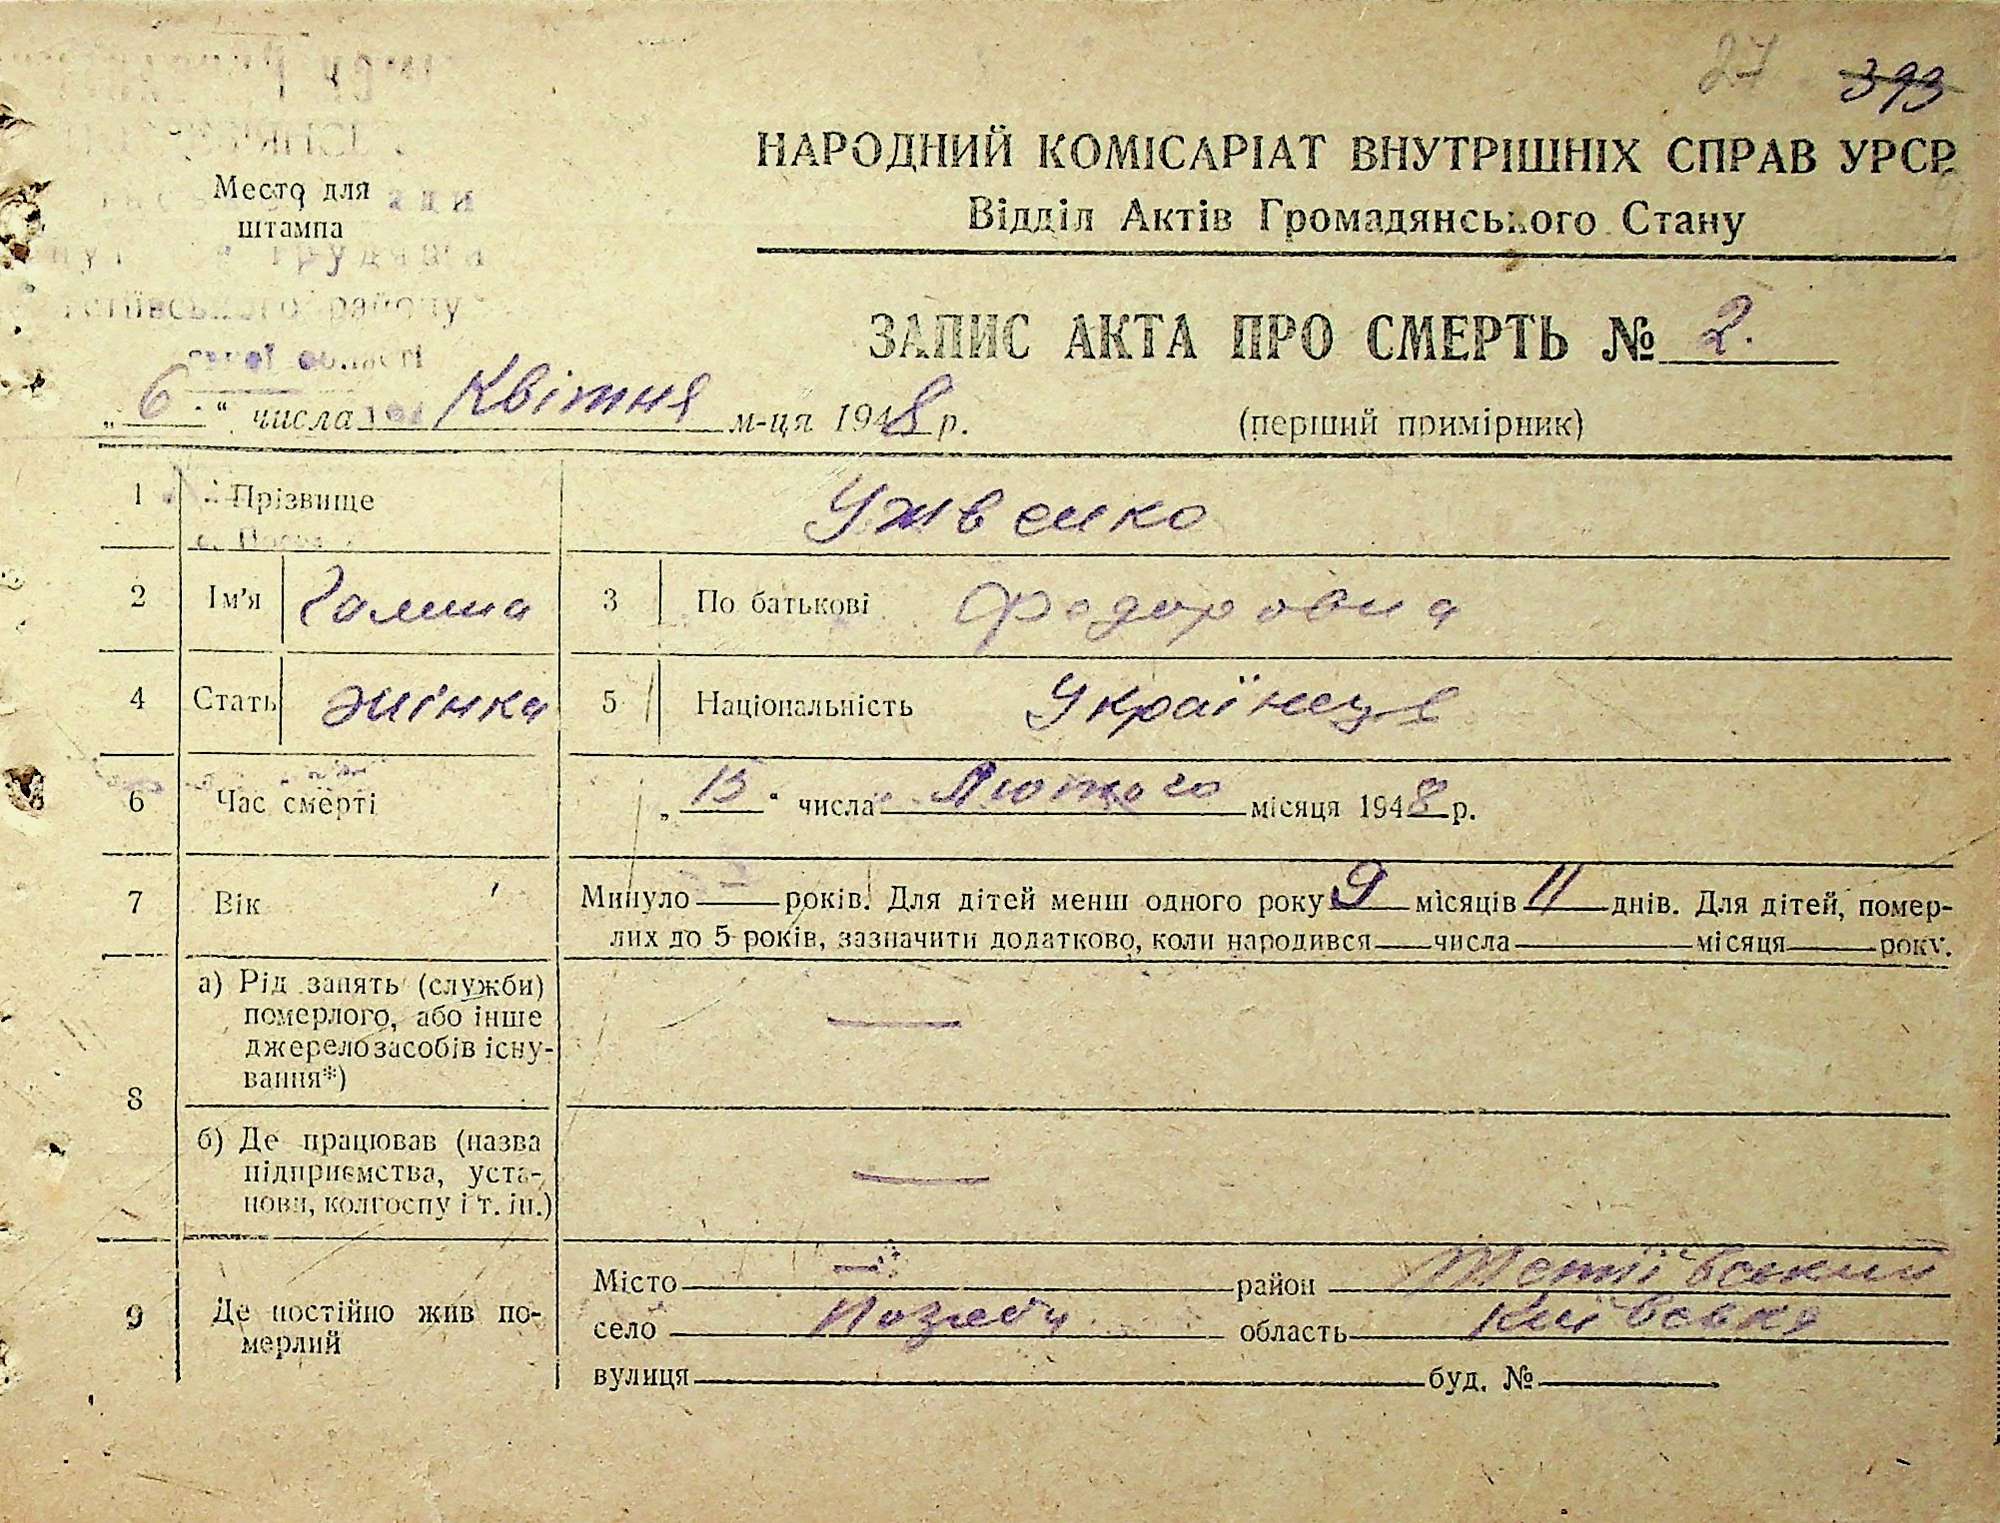 27 393
НАРОДНИЙ КОМІСАРІАТ ВНУТРІШНІХ СПРАВ УРСР
Відділ Актів Громадянського Стану
Место для
штампа
району
області
ЗАПИС АКТА ПРО СМЕРТЬ № 2.
„6“ числа Квітня м-ця 1948 р.
(перший примірник)
1 Прізвище Ужвенко
2 Ім'я Галина 3 По батькові Федоровна
4 Стать жінка 5 Національність Українця
6 Час смерті „15“ числа Лютого місяця 1948 р.
7 Вік Минуло — років. Для дітей менш одного року 9 місяців 11 днів. Для дітей, помер-
лих до 5 років, зазначити додатково, коли народився числа місяця року.
8 а) Рід занять (служби)
померлого, або інше
джерело засобів існу-
вання*)
—
б) Де працював (назва
підприємства, уста-
нови, колгоспу і т. ін.)
—
9 Де постійно жив по-
мерлий
Місто — район Тетіївський
село область Київська
вулиця буд. №